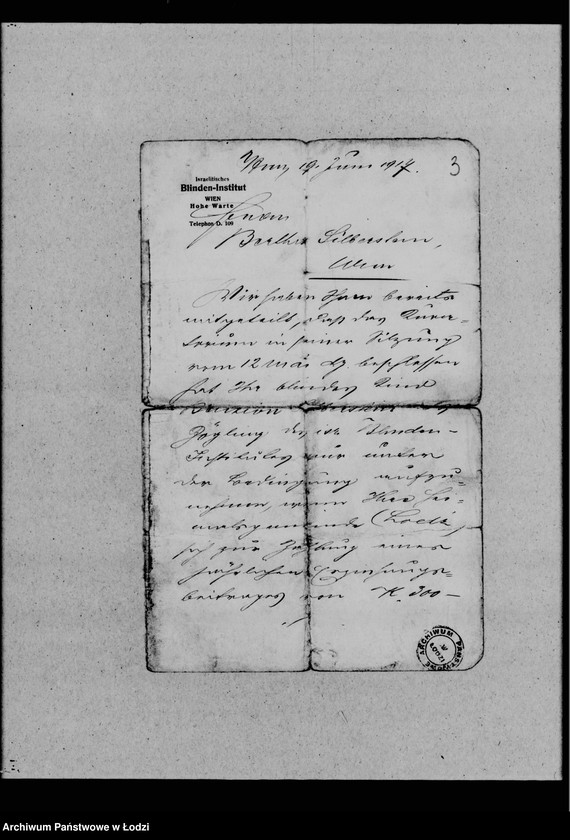 3
Wien, 19. Juni 1917.
Israelitisches
Blinden-Institut
WIEN
Hohe Warte
Telephon D. 109
Bertha Silberstein,
Wien
Wir haben Ihnen bereits
mitgeteilt, daß das Kura-
torium in seiner Sitzung
vom 12 Mai beschlossen
hat Ihr blindes Kind
als
Zögling des isr. Blinden-
Institutes nur unter
der Bedingung aufzu-
nehmen, wenn Ihre Hei-
matsgemeinde (Lodz)
sich zur Zahlung eines
jährlichen Erziehungs-
beitrages von K. 300 –
./.
ARCHIWUM PAŃSTWOWE
W ŁODZI
Archiwum Państwowe w Łodzi